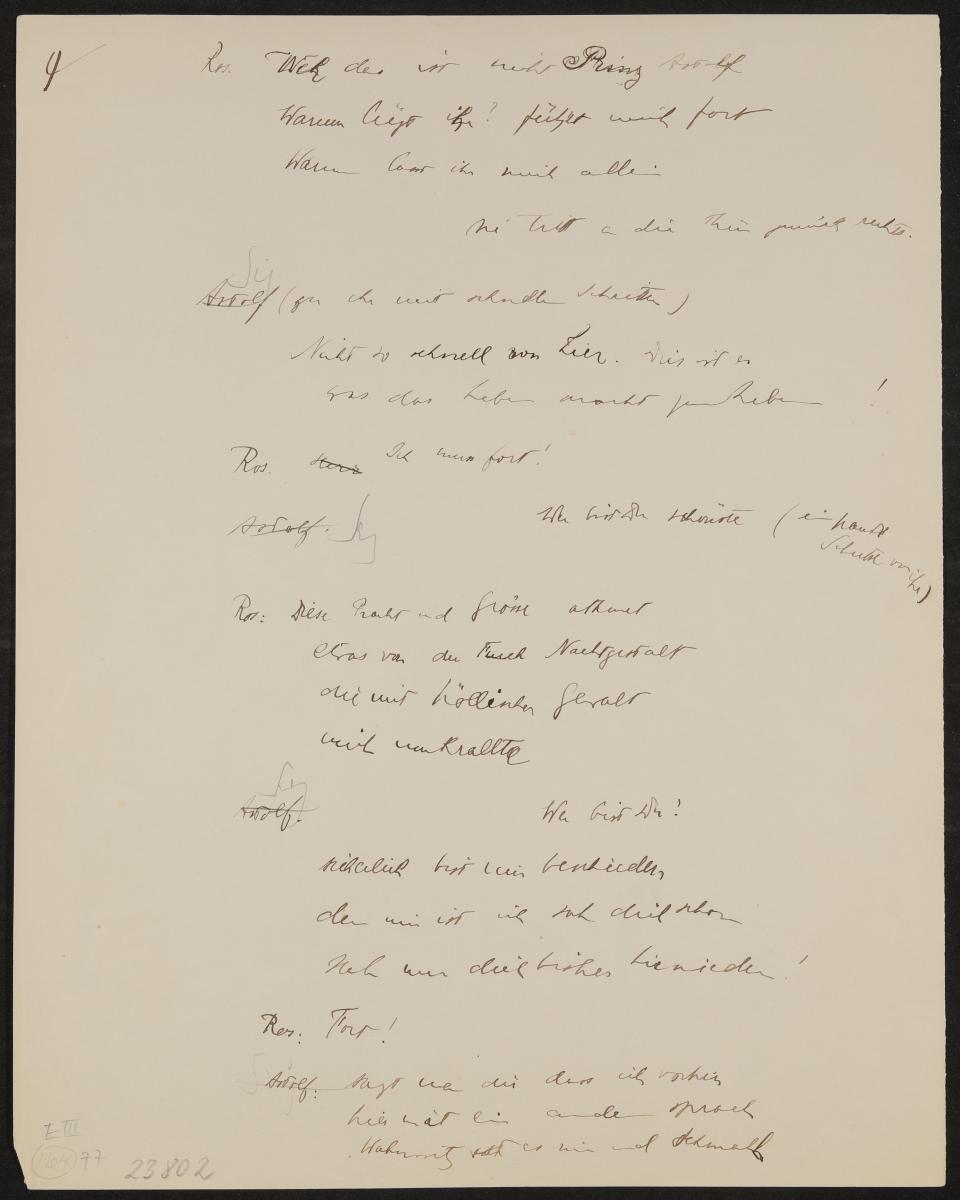 Ros. Weh das ist nicht Prinz Astolf
Warum lügt ihr? führet mich fort
Warum lasst ihr mich allein
sie tritt an die Thür zurück rechts.
Sig
Astolf (zu ihr mit schnellen Schritten)
Nicht so schnell von hier. Dies ist es
was das Leben macht zum Leben!
Ros. Ich muss fort!
Astolf. Sig Wer bist Du schönste (ein paar
Schritte vor ihr)
Ros: Diese Pracht und Grösse athmet
etwas von der Nachtgestalt
die mit höllischer Gewalt
mich umkrallte
Sig
Astolf. Wer bist Du!
sicherlich bist mir beschieden
den mir ist ich sah dich schon
Ros: Fort!
Astolf: sagt mir die dass ich vorhin
hier mit ein andern sprach
23802
77